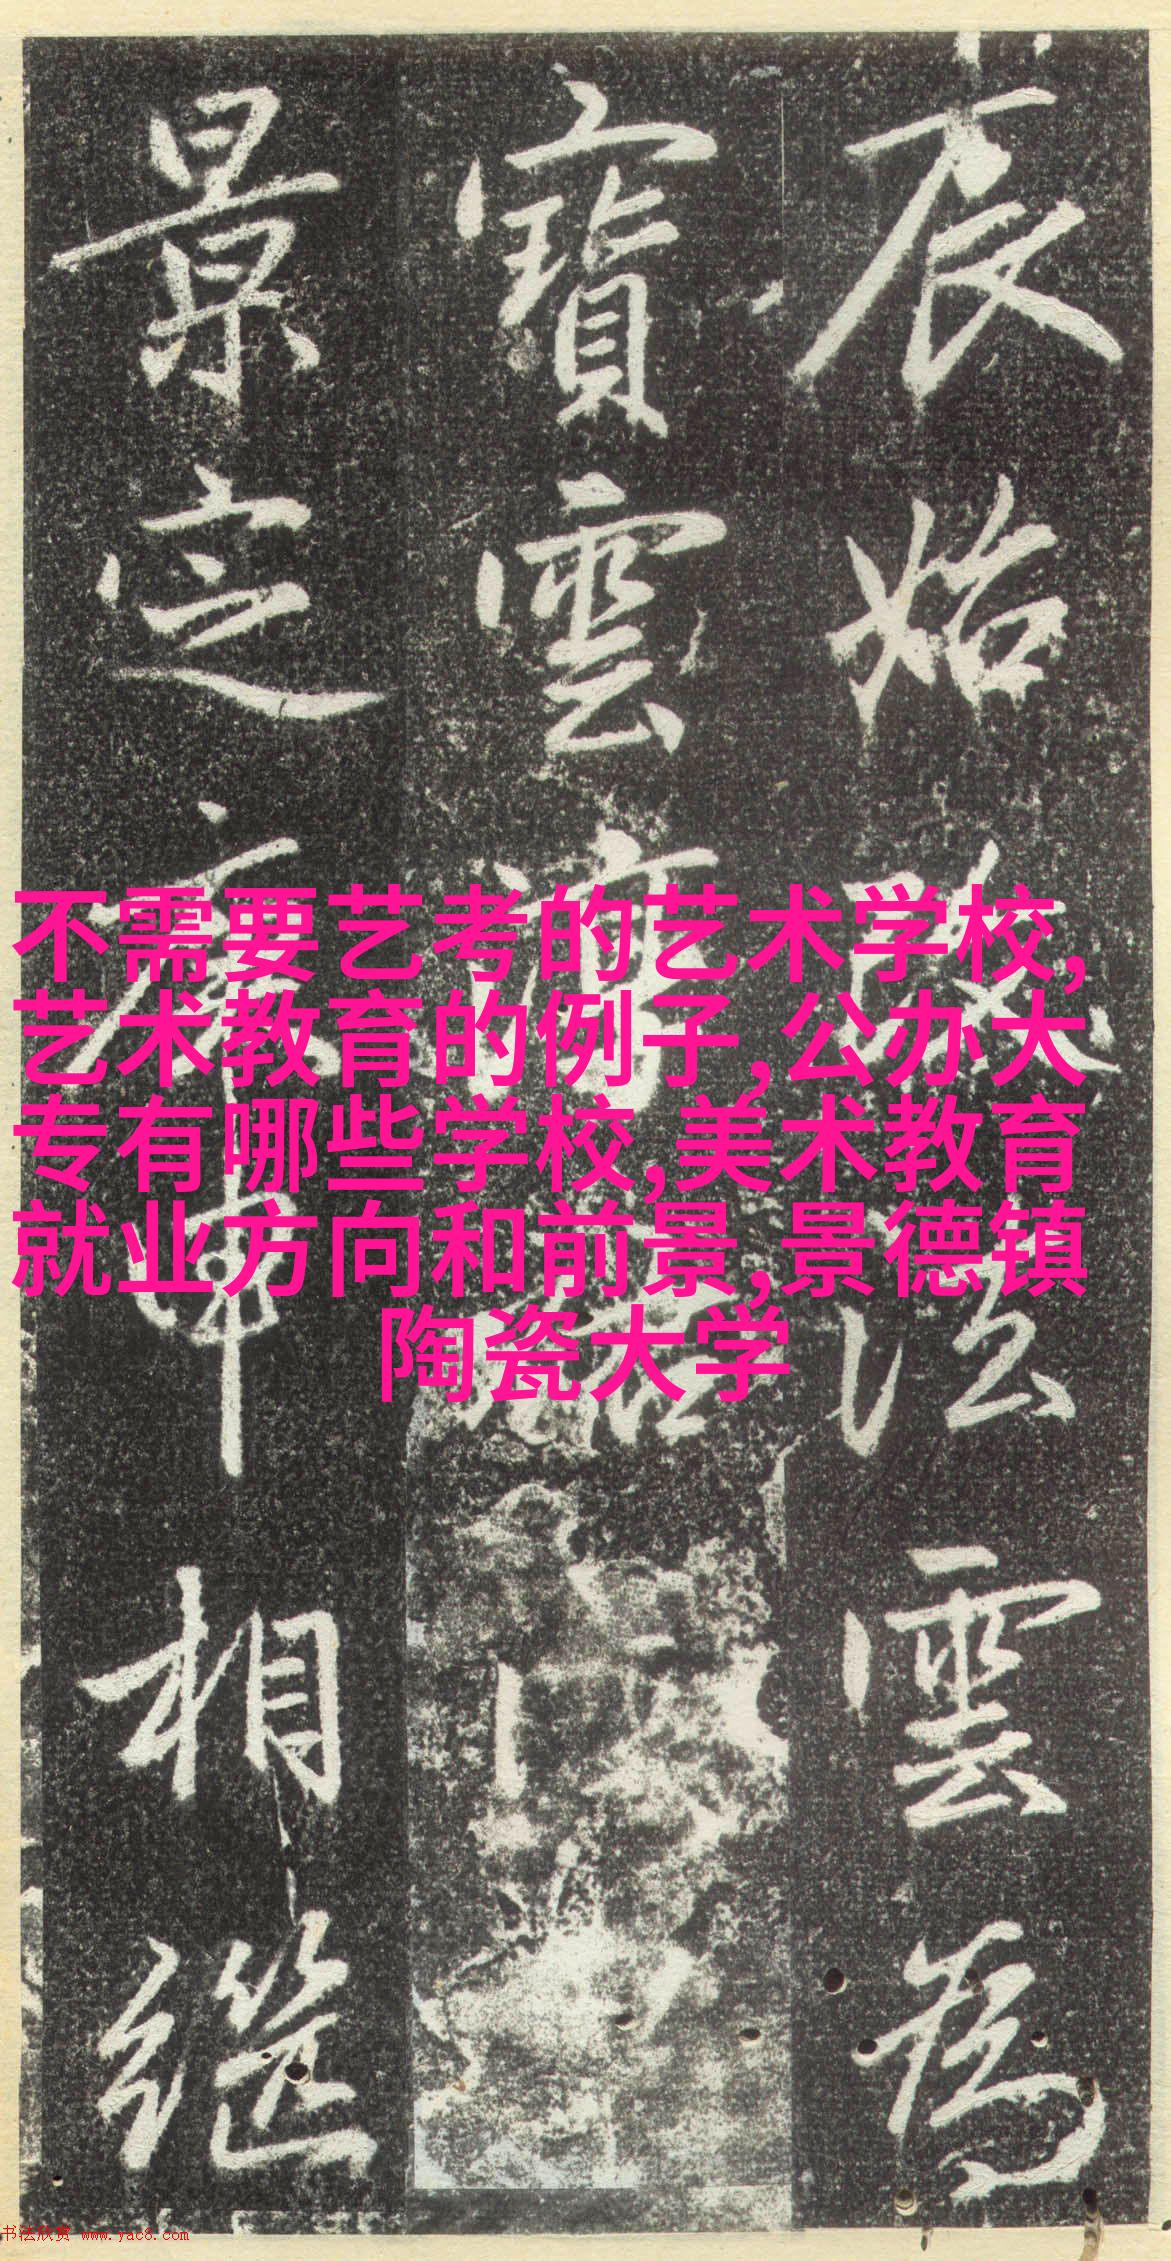 辰始法雲為
寶雲
景定庚申相繼
不需要艺考的艺术学校,
艺术教育的例子,公办大
专有哪些学校,美术教育
就业方向和前景,景德镇
陶瓷大学
书法欣赏 www.yac8.com